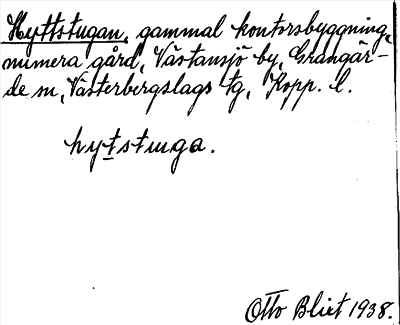 Hyttstugan, gammal kontorsbyggning,
numera gård, Västansjö by, Grangär-
de sn, Västerbergslags tg, Kopp. l.
hytstuga.
Otto Blixt 1938.